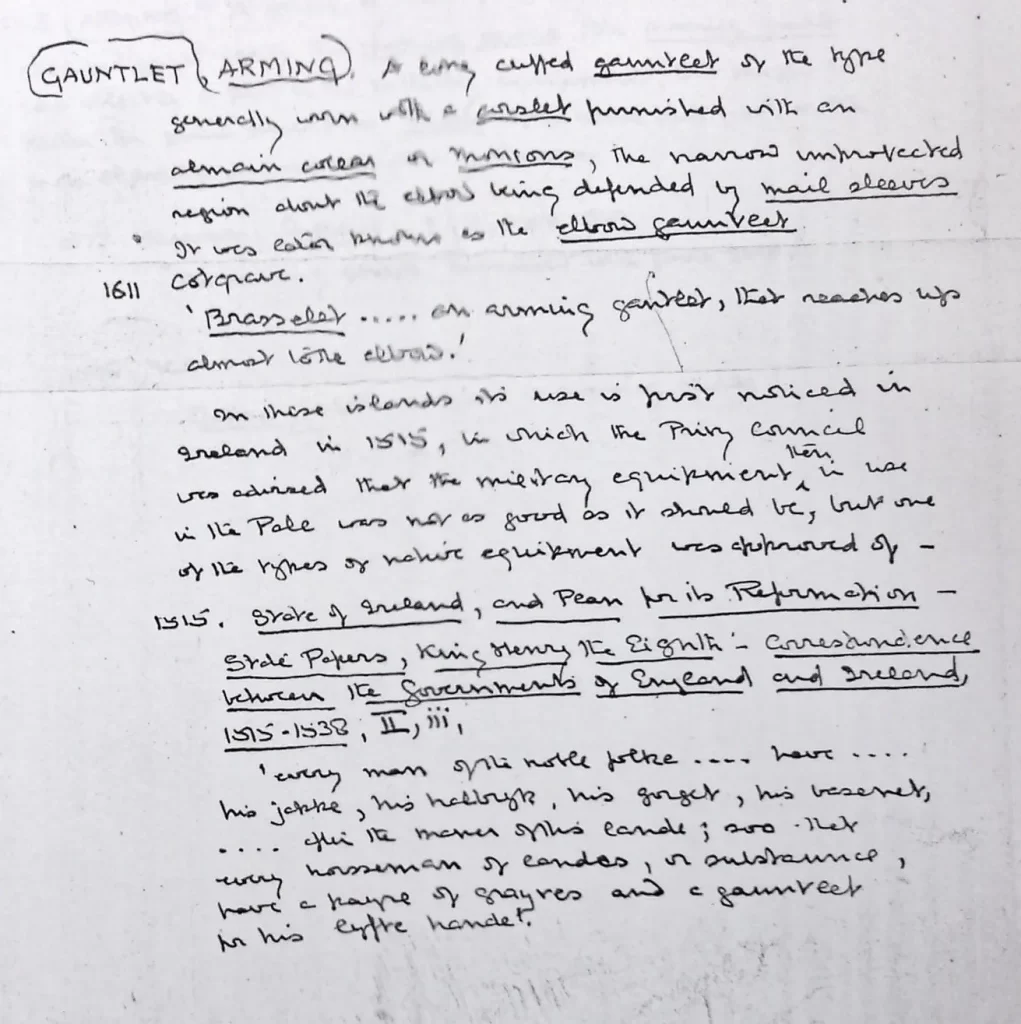 GAUNTLET, ARMING. A long cuffed gauntlet of the type
generally worn with a corslet furnished with an
almain collar or monions, the narrow unprotected
region about the elbow being defended by mail sleeves
It was later known as the elbow gauntlet
1611 Cotgrave.
'Brasselet ..... an arming gantlet, that reaches up
almost to the elbow.'
In these islands its use is first noticed in
Ireland in 1515, in which the Privy Council
was advised that the military equipment then in use
in the Pale was not as good as it should be, but one
of the types of native equipment was approved of –
1515. State of Ireland, and Plan for its Reformation –
State Papers, King Henry the Eighth – Correspondence
between the Governments of England and Ireland,
1515-1538, II, iii,
'every man of the noble folke .... have ....
his jakke, his halbryk, his gorget, his basenet,
.... after the maner of this lande; soo that
every horseman of landes, or substaunce,
have a payre of grayres and a gauntlet
for his lyfte hande'.